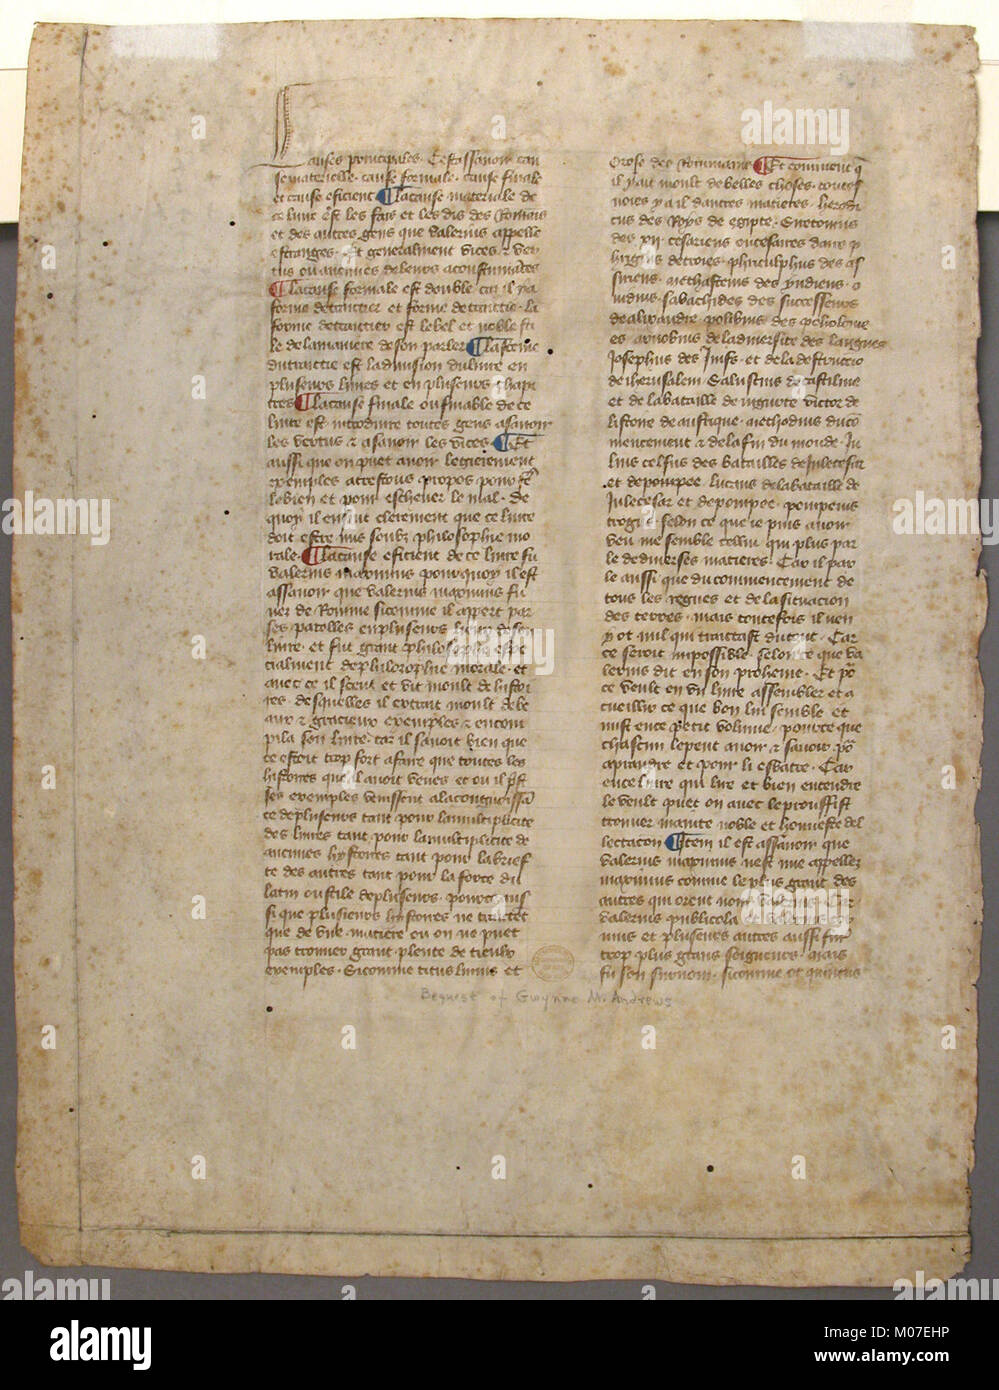 auses principales · Cest assavoir cau
se materielle · cause formale · cause finale
et cause efficient ¶ La cause materiale de
ce livre est les fais et les dis des Romais
et des autres gens que valerius appelle
estranges · Et generalment vices & ver
tus ou anciennes de leurs acoustumates
¶ La cause formale est double car il y a
forme detraictier et forme detraictie · la
forme detraictier est le bel et noble sti
le de la maniere de son parler ¶ La forme
du traictie est la division du livre en
plusieurs livres et en plusieurs chapi
tres ¶ La cause finale ou finable de ce
livre est introduire toutes gens a savoir
les vertus & a savoir les vices ¶ Et
aussi que on puet avoir legierement
exemples a tres tous propos pour fe
le bien et pour eschever le mal · de
quoy il ensuit clerement que ce livre
doit estre mis soubz philosophie mo
rale · ¶ La cause efficient de ce livre fu
valerius maximus pourquoy il est
assavoir que valerius maximus fu
ner de Romme si comme il appert par
ses parolles en plusieurs lieux de son
livre · et fut grant philosophe espe
cialment de philosophie morale · et
avec ce il sceut et vit moult de histoi
res · desquelles il extrait moult de be
aux & gracieux exemples & en com
pila son livre · car il savoit bien que
ce estoit trop fort a faire que toutes les
histoires que il avoit veues et ou il prist
les exemples venissent a la congnoissan
ce de plusieurs tant pour la multiplicite
des livres tant pour la multiplicite de
aucunes hystoires tant pour la brief
te des autres tant pour la force du
latin ou stile de plusieurs · pource aus
si que plusieurs hystoires ne traictet
que de une matiere ou on ne puet
pas trouver grant plente de tieulx
exemples · Si comme titus livius et
Orose des Rommains ¶ Et comment q̄
il y ait moult de belles choses · toutef
voies y a il d autres matieres · herodi
cus des Roys de egipte · Suetonius
des xij cesariens
josephus des juifs · et de la destructio
de iherusalem · Salustius de catiline
et de la bataille de jugurte victor de
listoire de auffrique · methodius du co
mencement & de la fin du monde · Ju
lius celsus des batailles de Julecesar
et de pompee · lucans de la bataille de
Julecesar et de pompee · pompeius
trogus selon ce que je puis avoir
veu me semble cellui qui plus par
le de diverses matieres · Car il par
le aussi que du commencement de
tous les regnes et de la situacion
des terres · mais toutefois il nen
y ot nul qui traictast du tout · Car
ce seroit impossible · selon ce que va
lerius dit en son proheme · Et po
ce veult en un livre assembler et a
cueillir ce que bon lui semble et
mist en ce petit volume · pource que
chascun le peut avoir & savoir po
aprandre et pour li esbatre · Car
en ce livre qui lire et bien entendre
le veult puet on avec le prouffist
trouver mainte noble et honneste del
lectacon ¶ Item il est assavoir que
valerius maximus nest mie appellez
maximus comme le plus grant des
autres qui orent nom valerius · Car
valerius publicola
mus et plusieurs autres aussi fur
trop plus grans seigneurs · mais
fu son surnom · si comme ot quintus
Bequest of Gwynne M. Andrews
alamy
M07EHP
www.alamy.com